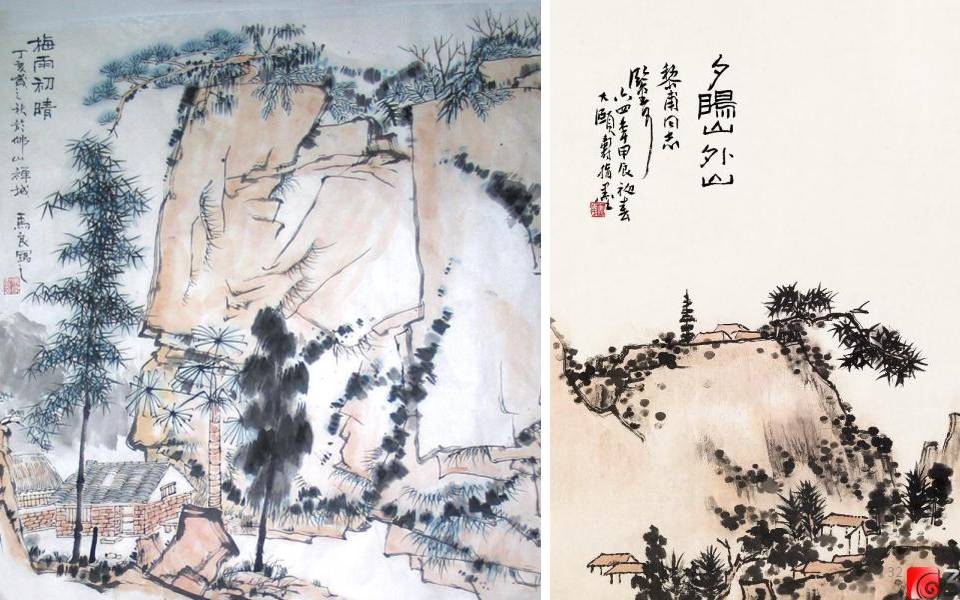 梅雨初晴
丁亥歲之秋於佛山禪城 馬良寫之
夕暘山外山
黎甫同志
鑒正
六四年甲辰初春
大頤壽指墨